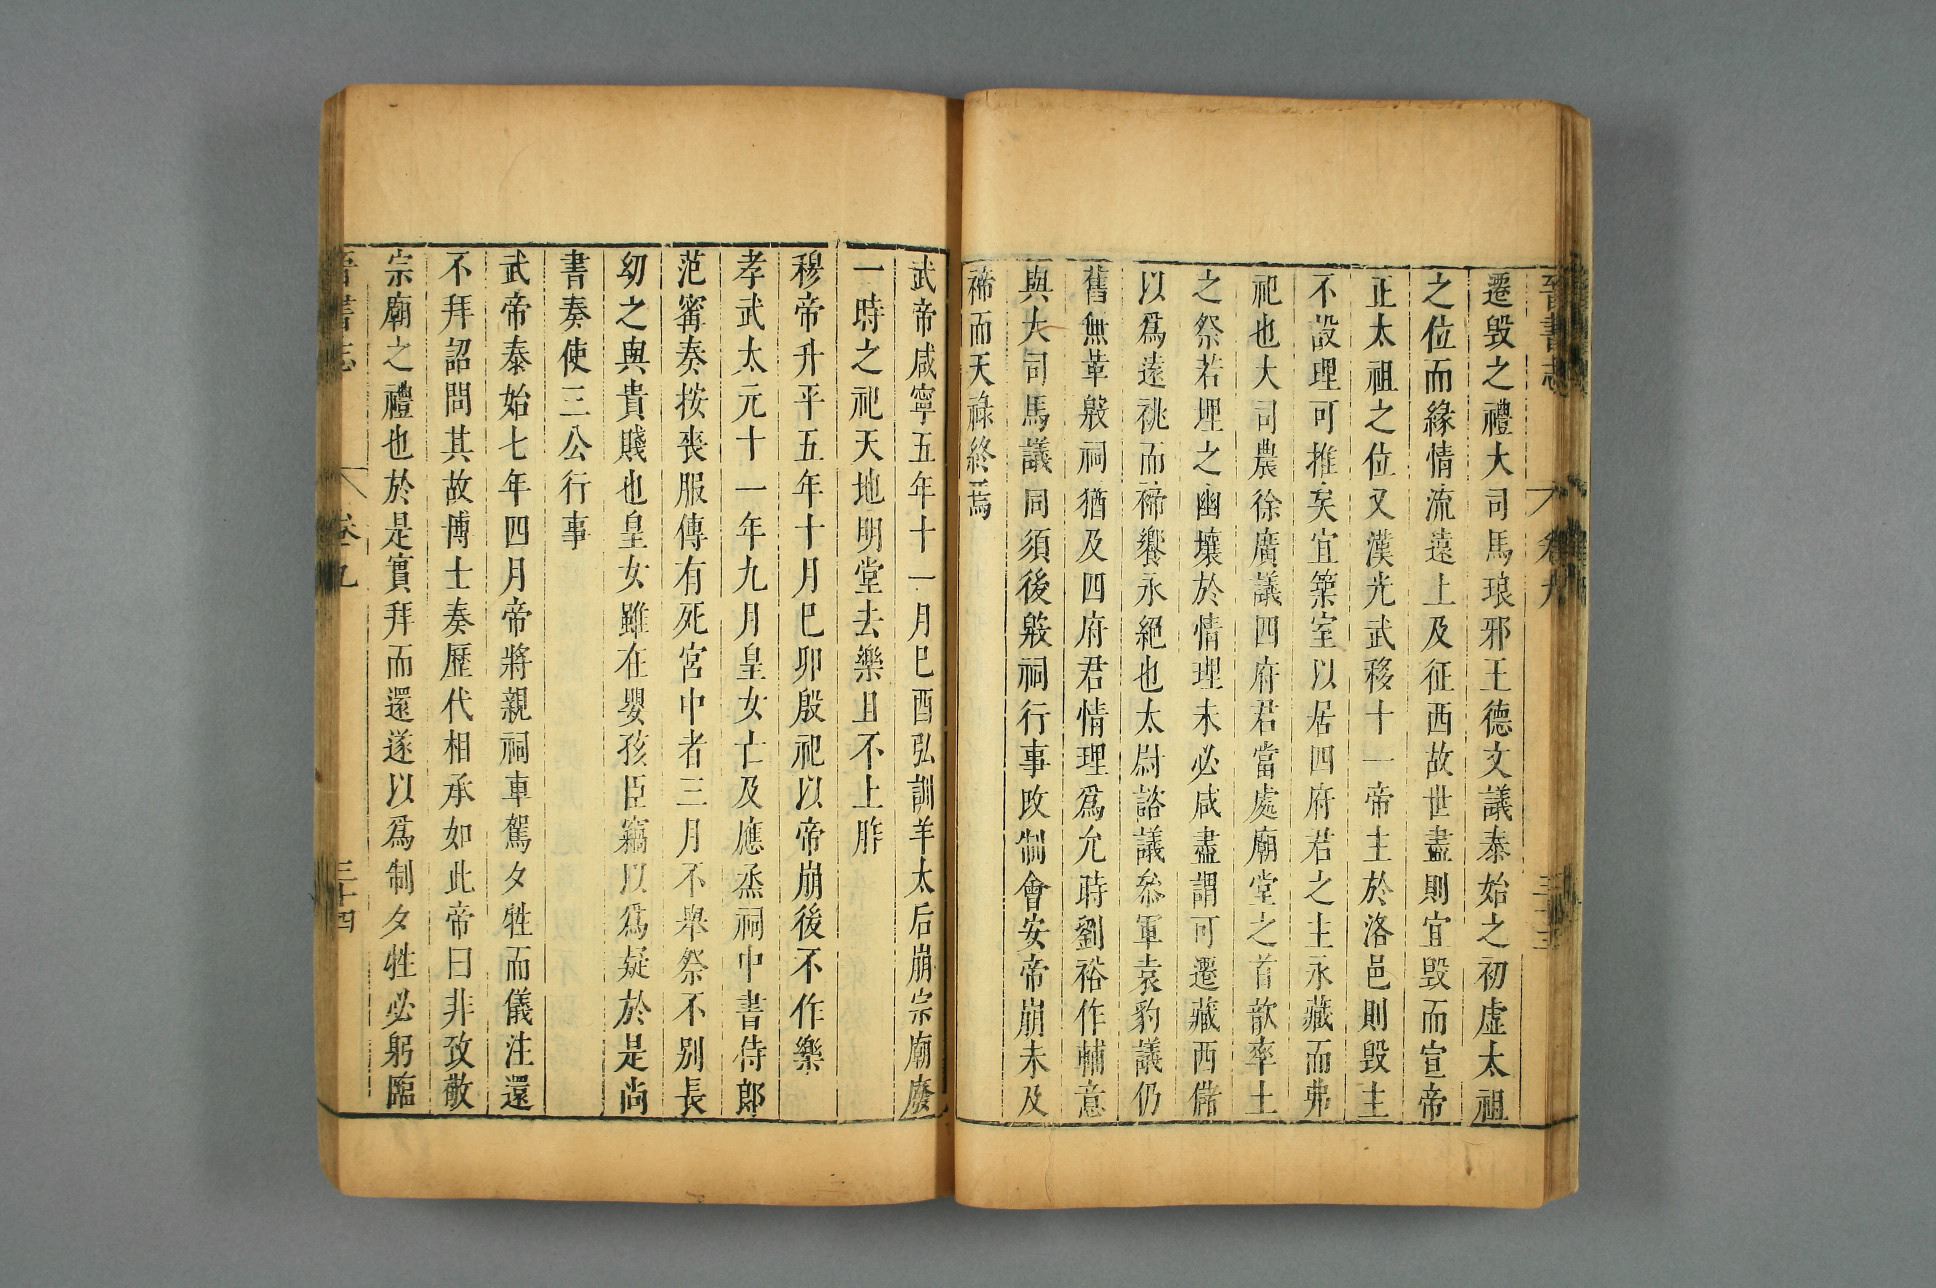 晉書志 卷九 三十三
遷毀之禮大司馬琅邪王德文議泰始之初虛太祖
之位而緣情流遠上及征西故世盡則宜毀而宣帝
正太祖之位又漢光武移十一帝主於洛邑則毀主
不設理可推矣宜築室以居四府君之主永藏而弗
祀也大司農徐廣議四府君當處廟堂之首歆率土
之祭若埋之幽壤於情理未必咸盡謂可遷藏西儲
以爲遠祧而禘饗永絕也太尉諮議叅軍袁豹議仍
舊無革殷祠猶及四府君情理爲允時劉裕作輔意
與大司馬議同須後殷祠行事改制會安帝崩未及
禘而天祿終焉
武帝咸寧五年十一月巳酉弘訓羊太后崩宗廟廢
一時之祀天地明堂去樂且不上胙
穆帝升平五年十月巳卯殷祀以帝崩後不作樂
孝武太元十一年九月皇女亡及應烝祠中書侍郎
范甯奏按喪服傳有死宮中者三月不舉祭不别長
幼之與貴賤也皇女雖在嬰孩臣竊以爲疑於是尚
書奏使三公行事
武帝泰始七年四月帝將親祠車駕夕牲而儀注還
不拜詔問其故博士奏歷代相承如此帝曰非致敬
宗廟之禮也於是實拜而還遂以爲制夕牲必躬臨
晉書志 卷九 三十四